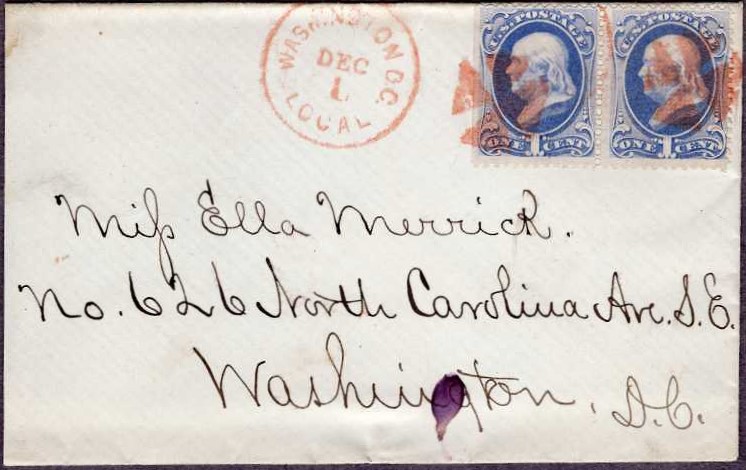 WASHINGTON D.C.
DEC
1
LOCAL
U.S. POSTAGE
ONE 1 CENT
U.S. POSTAGE
ONE 1 CENT
Miſs Ella Merrick.
No. 626 North Carolina Ave. S.E.
Washington, D.C.